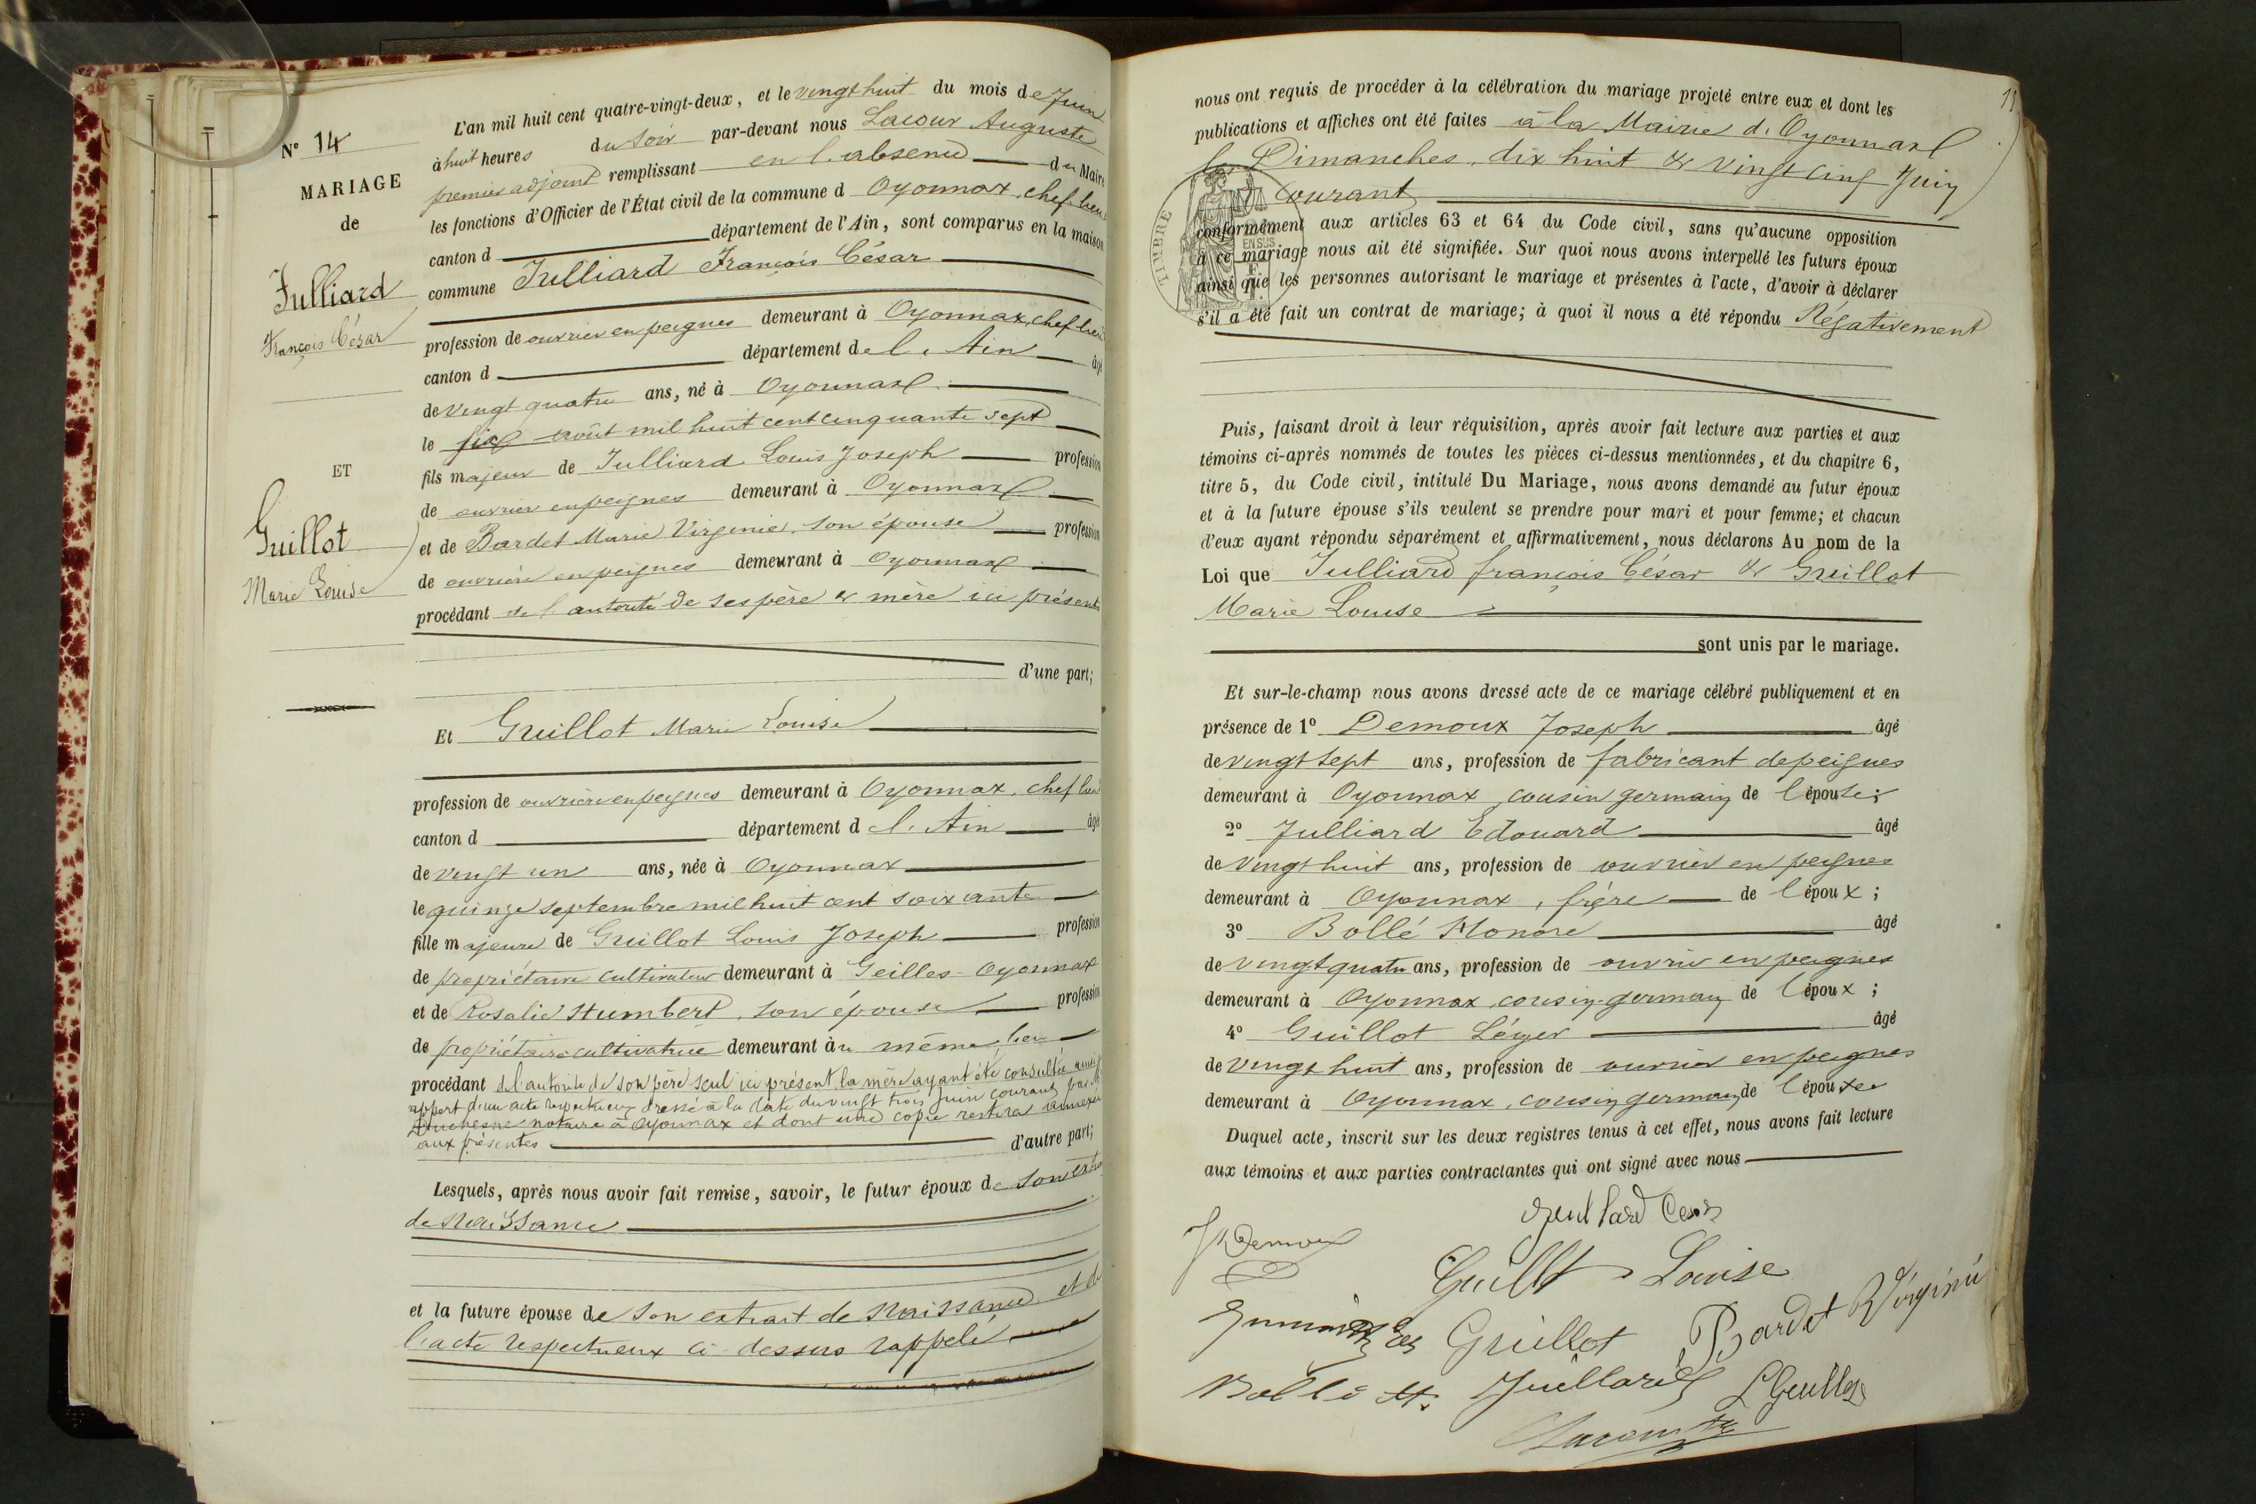 N° 14
MARIAGE
de
Julliard
François César
ET
Guillot
Marie Louise
L'an mil huit cent quatre-vingt-deux, et le vingt huit du mois de Juin
à huit heures du soir par-devant nous Lacour Auguste
premier adjoint remplissant en l'absence du Maire
les fonctions d'Officier de l'État civil de la commune d Oyonnax, chef lieu
canton d département de l'Ain, sont comparus en la maison
commune Julliard François César
profession de ouvrier en peignes demeurant à Oyonnax, chef lieu
canton d département de l'Ain âgé
de vingt quatre ans, né à Oyonnax
le six août mil huit cent cinquante sept
fils majeur de Julliard Louis Joseph profession
de ouvrier en peignes demeurant à Oyonnax
et de Bardet Marie Virginie, son épouse profession
de ouvrière en peignes demeurant à Oyonnax
procédant de l'autorité de ses père & mère ici présents
d'une part;
Et Guillot Marie Louise
profession de ouvrière en peignes demeurant à Oyonnax, chef lieu
canton d département d l'Ain âgé
de vingt un ans, née à Oyonnax
le quinze septembre mil huit cent soixante
fille majeure de Guillot Louis Joseph profession
de propriétaire cultivateur demeurant à Geilles-Oyonnax
et de Rosalie Humbert, son épouse profession
de propriétaire cultivatrice demeurant au même lieu
procédant de l'autorité de son père seul ici présent la mère ayant été consultée ainsi qu'il
appert d'un acte respectueux dressé à la date du vingt trois Juin courant par Me
Duchesne notaire à Oyonnax et dont une copie restera annexée
aux présentes d'autre part;
Lesquels, après nous avoir fait remise, savoir, le futur époux de son extrait
de Naissance
et la future épouse de son extrait de Naissance et de
l'acte respectueux ci-dessus rappelé
nous ont requis de procéder à la célébration du mariage projeté entre eux et dont les
publications et affiches ont été faites à la Mairie d'Oyonnax
les Dimanches, dix huit & vingt cinq Juin
courant
TIMBRE
EN SUS
conformément aux articles 63 et 64 du Code civil, sans qu'aucune opposition
à ce mariage nous ait été signifiée. Sur quoi nous avons interpellé les futurs époux
ainsi que les personnes autorisant le mariage et présentes à l'acte, d'avoir à déclarer
s'il a été fait un contrat de mariage; à quoi il nous a été répondu Négativement
Puis, faisant droit à leur réquisition, après avoir fait lecture aux parties et aux
témoins ci-après nommés de toutes les pièces ci-dessus mentionnées, et du chapitre 6,
titre 5, du Code civil, intitulé Du Mariage, nous avons demandé au futur époux
et à la future épouse s'ils veulent se prendre pour mari et pour femme; et chacun
d'eux ayant répondu séparément et affirmativement, nous déclarons Au nom de la
Loi que Julliard françois César & Guillot
Marie Louise
sont unis par le mariage.
Et sur-le-champ nous avons dressé acte de ce mariage célébré publiquement et en
présence de 1° Demoux Joseph âgé
de vingt sept ans, profession de fabricant de peignes
demeurant à Oyonnax cousin germain de l'épouse;
2° Julliard Edouard âgé
de vingt huit ans, profession de ouvrier en peignes
demeurant à Oyonnax, frère de l'époux;
3° Bollé Honoré âgé
de vingt quatre ans, profession de ouvrier en peignes
demeurant à Oyonnax, cousin-germain de l'époux;
4° Guillot Léger âgé
de vingt huit ans, profession de ouvrier en peignes
demeurant à Oyonnax, cousin germain de l'épouse
Duquel acte, inscrit sur les deux registres tenus à cet effet, nous avons fait lecture
aux témoins et aux parties contractantes qui ont signé avec nous
Jh Demoux
Guillot Louise
Guillot Bardet Virginie
Bollé H. Juillard L Guillot
Lacour